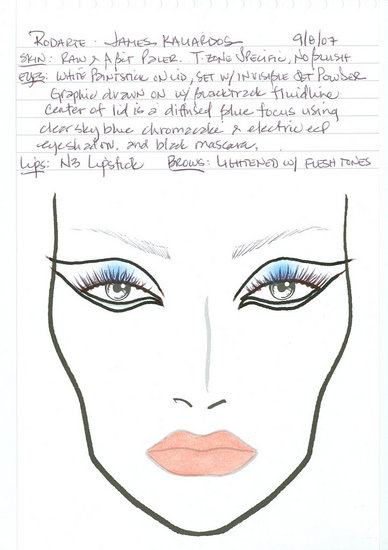 RODARTE - JAMES KALIARDOS 9/8/07
SKIN: RAW & A BIT PALER. T-ZONE SPECIFIC, NO BLUSH
EYES: WHITE PAINTSTICK ON LID, SET W/ INVISIBLE SET POWDER
Graphic drawn on w/ blacktrack fluidline
Center of lid is a diffused blue focus using
clear sky blue chromacake & electric eel
eyeshadow. and black mascara.
Lips: N3 Lipstick BROWS: LIGHTENED W/ FLESHTONES